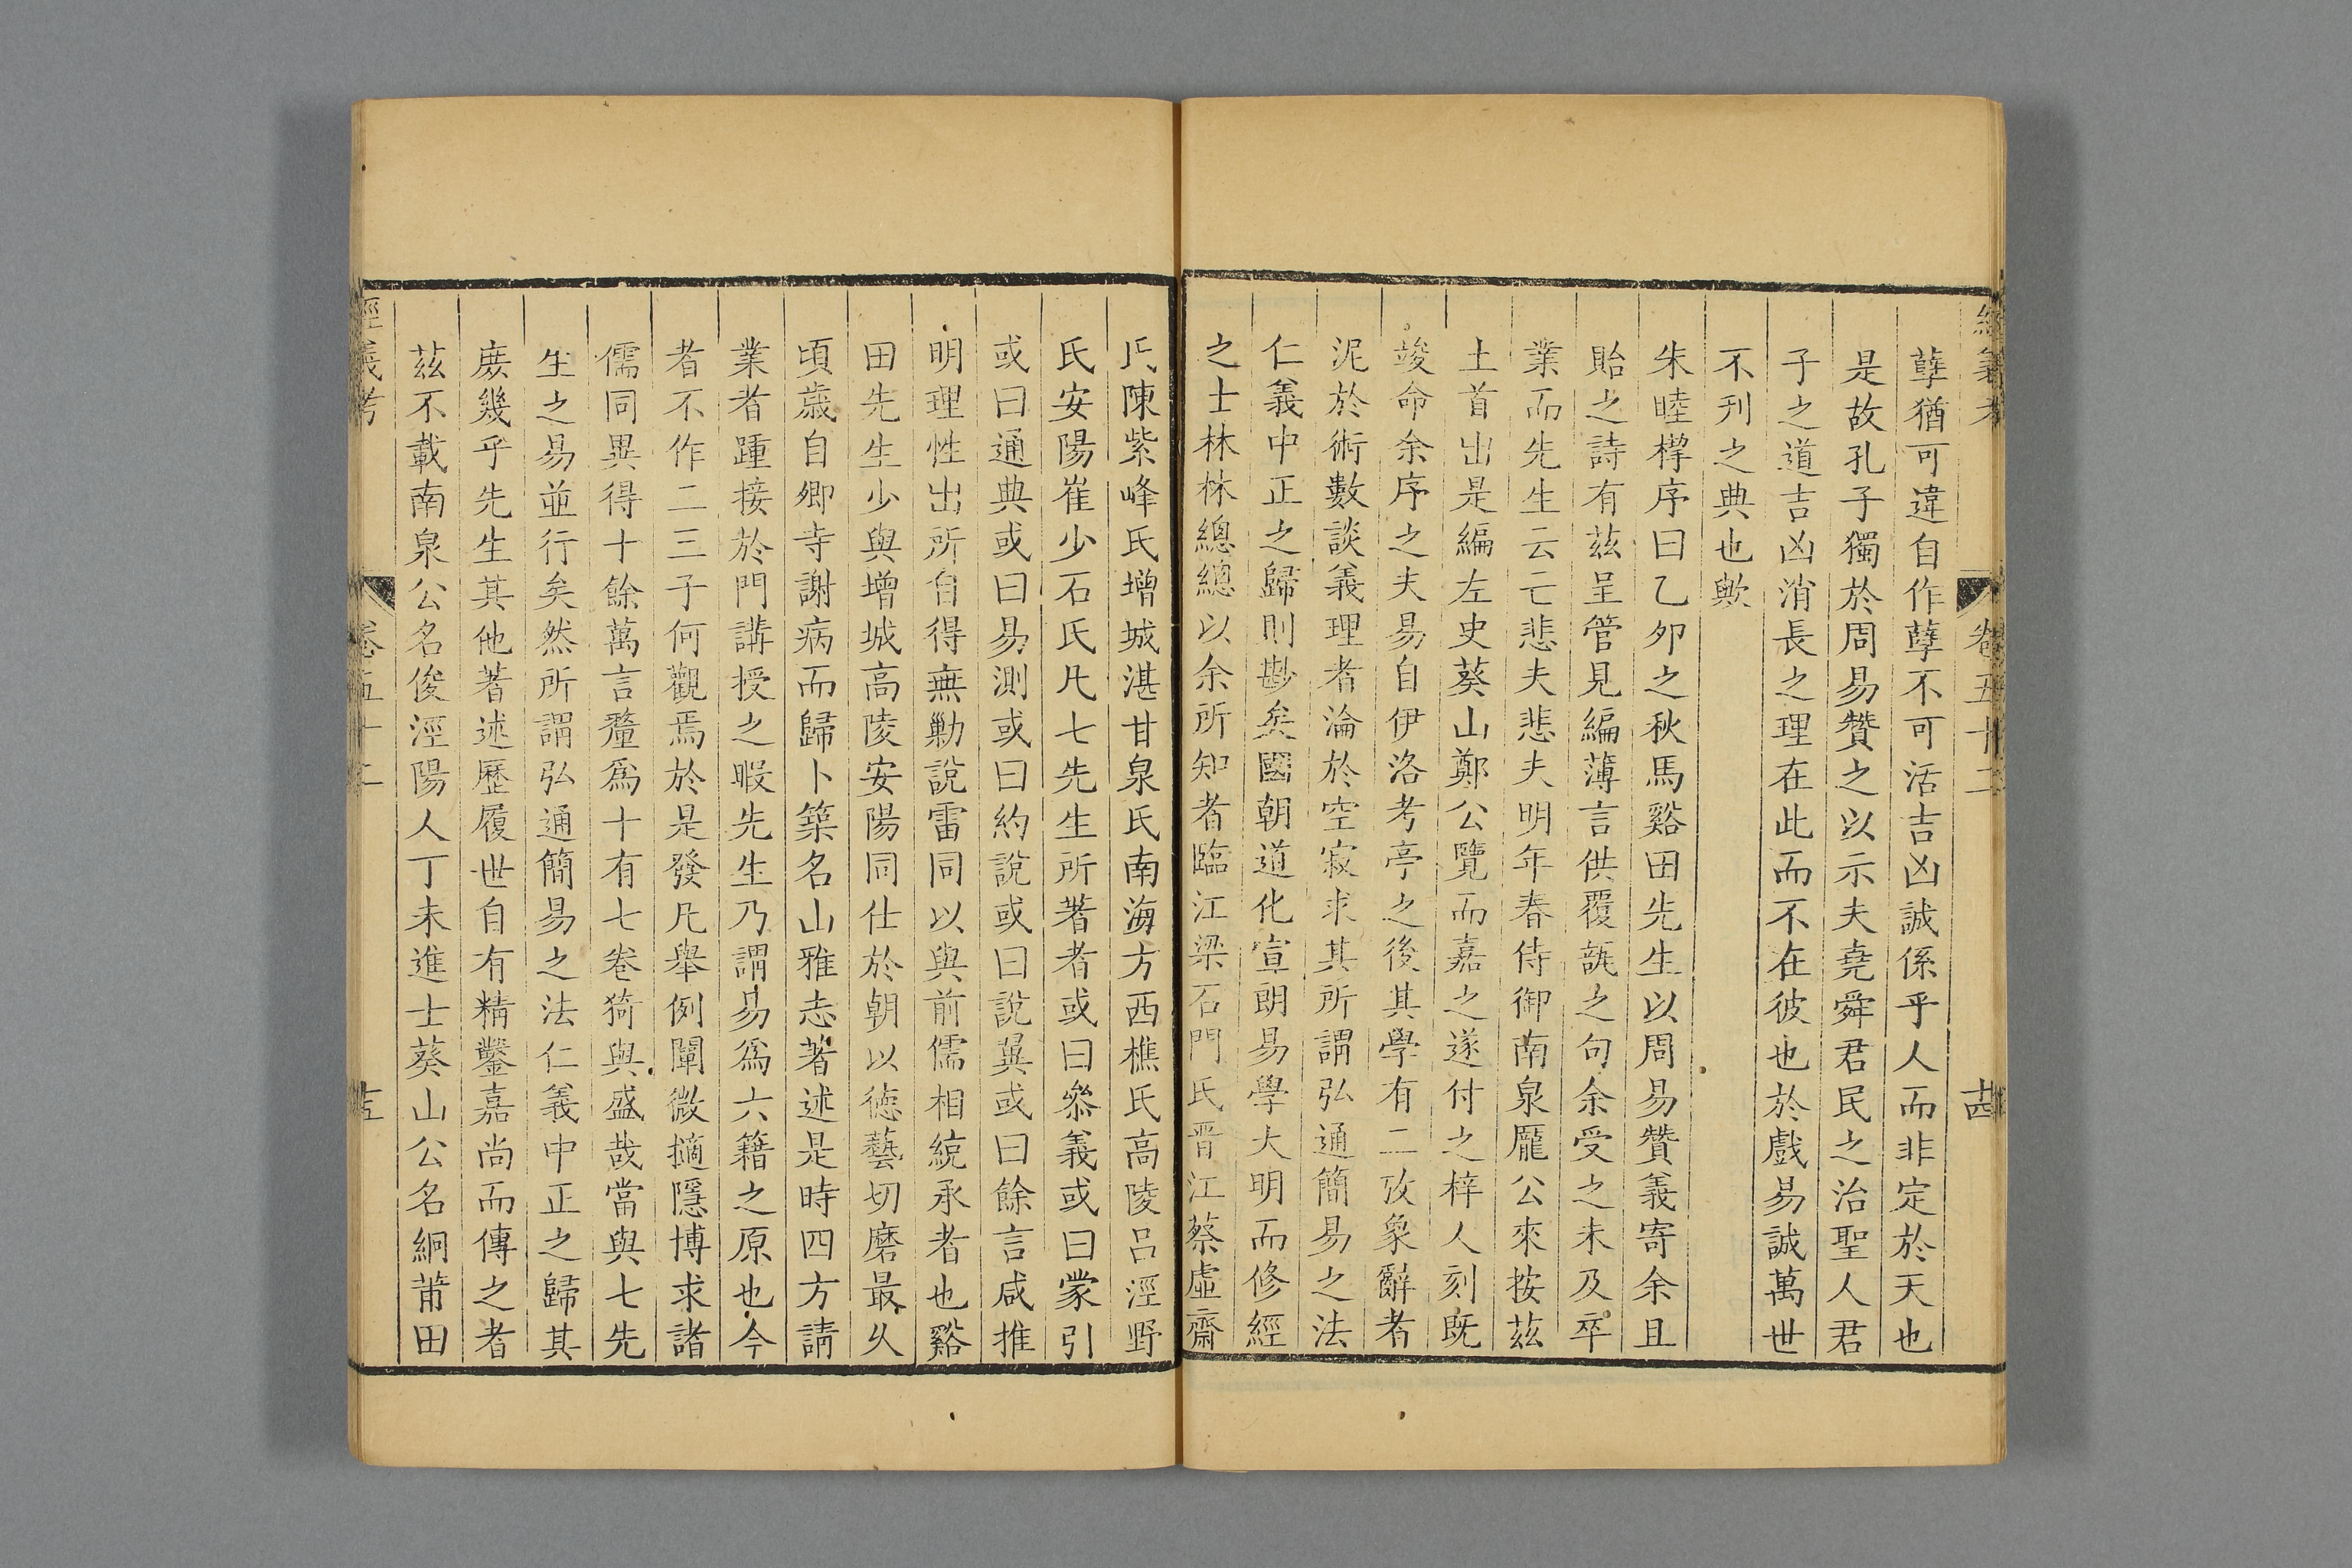 經義考 卷五十二 十四
孽猶可違自作孽不可活吉凶誠係乎人而非定於天也
是故孔子獨於周易贊之以示夫堯舜君民之治聖人君
子之道吉凶消長之理在此而不在彼也於戲易誠萬世
不刊之典也歟
朱睦㮮序曰乙夘之秋馬谿田先生以周易贊義寄余且
貽之詩有茲呈管見編薄言供覆瓿之句余受之未及卒
業而先生云亡悲夫悲夫明年春侍御南泉龎公來按茲
土首出是編左史葵山鄭公覽而嘉之遂付之梓人刻既
竣命余序之夫易自伊洛考亭之後其學有二攷象辭者
泥於術數談義理者淪於空寂求其所謂弘通簡易之法
仁義中正之歸則尠矣國朝道化宣朗易學大明而修經
之士林林總總以余所知者臨江梁石門氏晉江蔡虛齋
氏陳紫峰氏增城湛甘泉氏南海方西樵氏高陵呂涇野
氏安陽崔少石氏凢七先生所著者或曰叅義或曰蒙引
或曰通典或曰易測或曰約說或曰說翼或曰餘言咸推
明理性出所自得無勦說雷同以與前儒相統承者也谿
田先生少與增城高陵安陽同仕於朝以德藝切磨最久
頃歲自卿寺謝病而歸卜築名山雅志著述是時四方請
業者踵接於門講授之暇先生乃謂易為六籍之原也今
者不作二三子何觀焉於是發凢舉例闡微摘隱博求諸
儒同異得十餘萬言釐為十有七卷猗與盛哉當與七先
生之易並行矣然所謂弘通簡易之法仁義中正之歸其
庻幾乎先生其他著述歷履世自有精鑒嘉尚而傳之者
茲不載南泉公名俊涇陽人丁未進士葵山公名絅莆田
經義考 卷五十二 十五